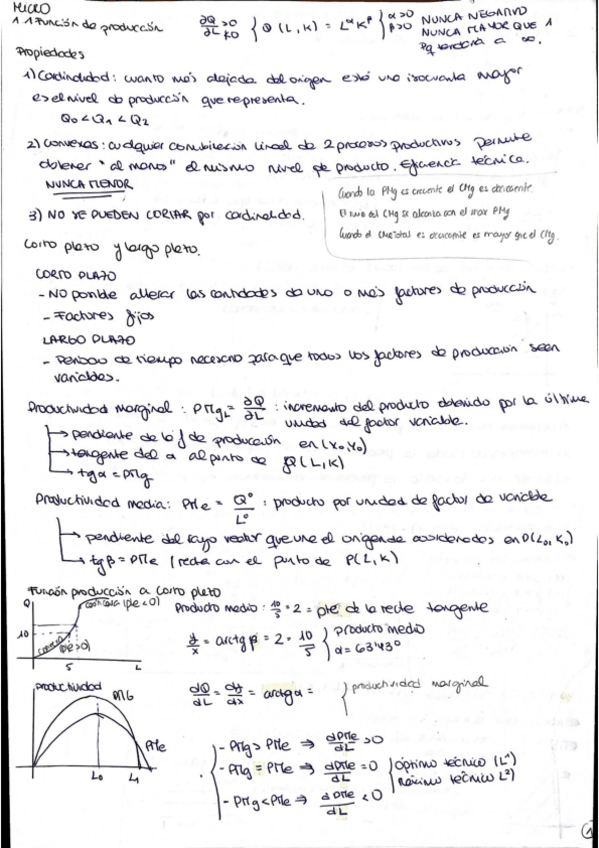 MICRO
1.1 Función de producción ∂Q/∂L >0 { Q(L,K) = L^α K^β { α>0 β>0 NUNCA NEGATIVO
NUNCA MAYOR QUE 1
Pq tendería a ∞.
Propiedades
1) Cardinalidad: cuanto más alejada del origen está una isocuanta mayor
es el nivel de producción que representa.
Q0 < Q1 < Q2
2) Convexas: cualquier combinación lineal de 2 procesos productivos permite
obtener "al menos" el mismo nivel de producto. Eficiencia técnica.
NUNCA MENOR
3) NO SE PUEDEN CORTAR por cardinalidad.
Cuando la PMg es creciente el CMg es decreciente.
El mín del CMg se alcanza con el max PMg
Cuando el es decreciente es mayor que el CMg.
Corto plazo y largo plazo.
CORTO PLAZO
- NO posible alterar las cantidades de uno o más factores de producción
- Factores fijos
LARGO PLAZO
- Periodo de tiempo necesario para que todos los factores de producción sean
variables.
Productividad marginal: PMgL = ∂Q/∂L : incremento del producto obtenido por la última
unidad del factor variable.
→ pendiente de la f de producción en (X0,Y0)
→ tangente del α al punto de P(L,K)
→ tg α = PMg
Productividad media: PMe = Q°/L° : producto por unidad de factor de variable
→ pendiente del rayo vector que une el origen de coordenadas en P(L0, K0)
→ tg β = PMe / recta con el punto de P(L,K)
Función producción a corto plazo
Q
cóncava (pte<0)
10
convexa (pte>0)
5 L
Producto medio: 10/5 = 2 = pte de la recta tangente
y/x = arctg β = 2 = 10/5 } producto medio
α = 63'43°
productividad
PMG
PMe
L0 L1
dQ/dL = dy/dx = arctg α = } productividad marginal
- PMg > PMe ⇒ dPMe/dL >0
- PMg = PMe ⇒ dPMe/dL = 0 } óptimo técnico (L¹)
máximo técnico (L²)
- PMg < PMe ⇒ dPMe/dL < 0
1